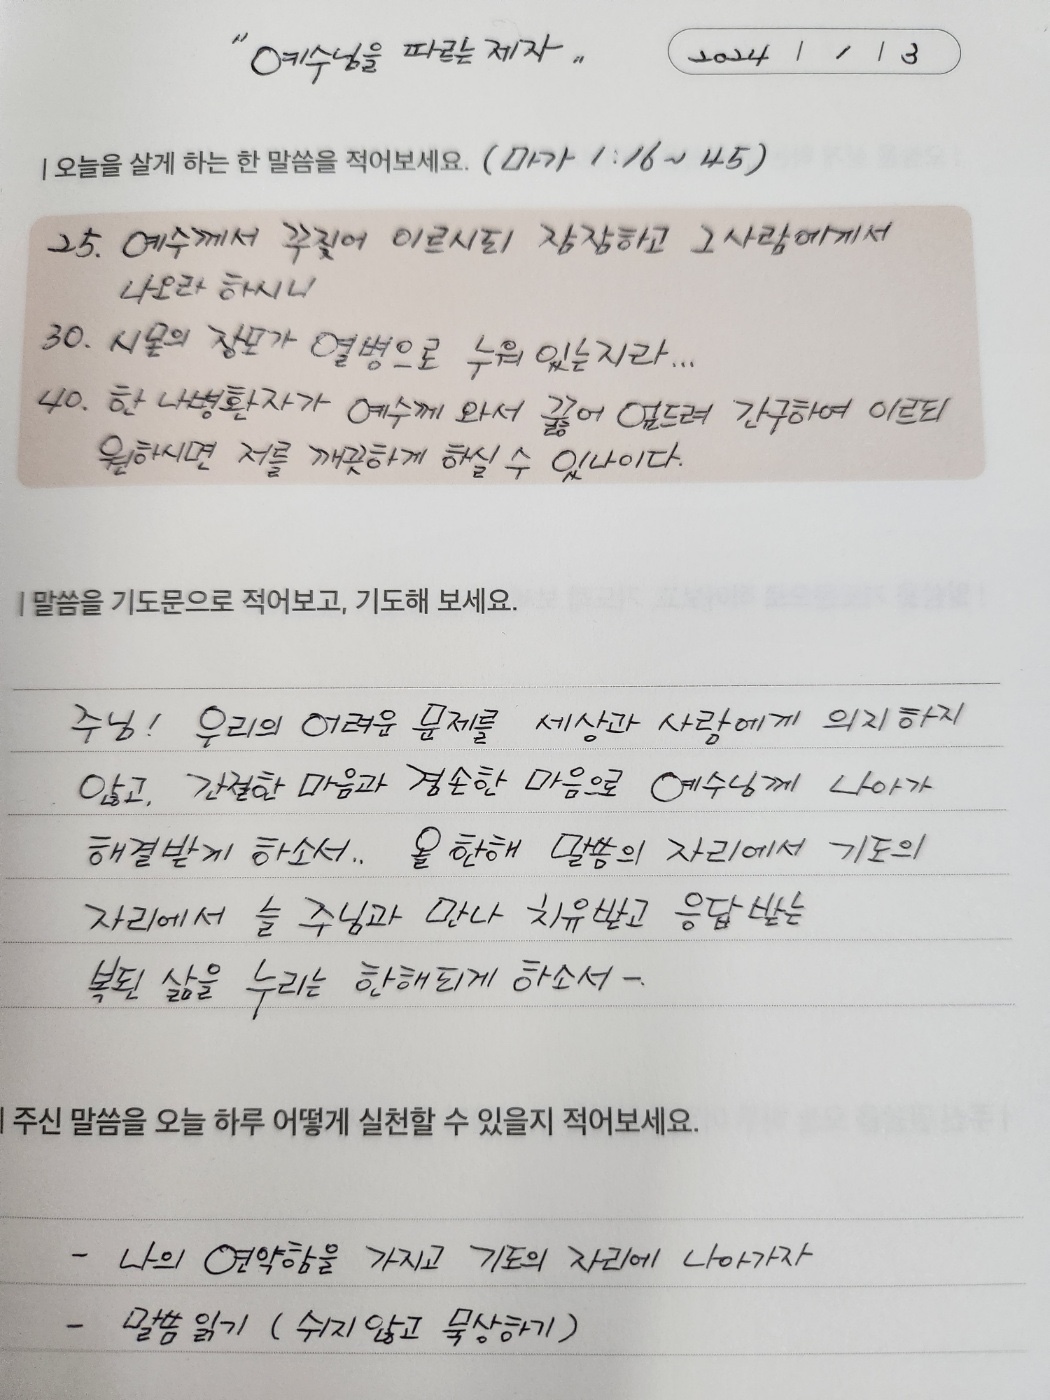 "예수님을 따르는 제자"
2024 / 1 / 3
| 오늘을 살게 하는 한 말씀을 적어보세요. (마가 1:16~45)
25. 예수께서 꾸짖어 이르시되 잠잠하고 그 사람에게서
나오라 하시니
30. 시몬의 장모가 열병으로 누워 있는지라...
40. 한 나병환자가 예수께 와서 꿇어 엎드려 간구하여 이르되
원하시면 저를 깨끗하게 하실 수 있나이다.
| 말씀을 기도문으로 적어보고, 기도해 보세요.
주님! 우리의 어려운 문제를 세상과 사람에게 의지하지
않고, 간절한 마음과 겸손한 마음으로 예수님께 나아가
해결받게 하소서.. 올 한해 말씀의 자리에서 기도의
자리에서 늘 주님과 만나 치유받고 응답 받는
복된 삶을 누리는 한해되게 하소서-.
| 주신 말씀을 오늘 하루 어떻게 실천할 수 있을지 적어보세요.
- 나의 연약함을 가지고 기도의 자리에 나아가자
- 말씀 읽기 (쉬지 않고 묵상하기)